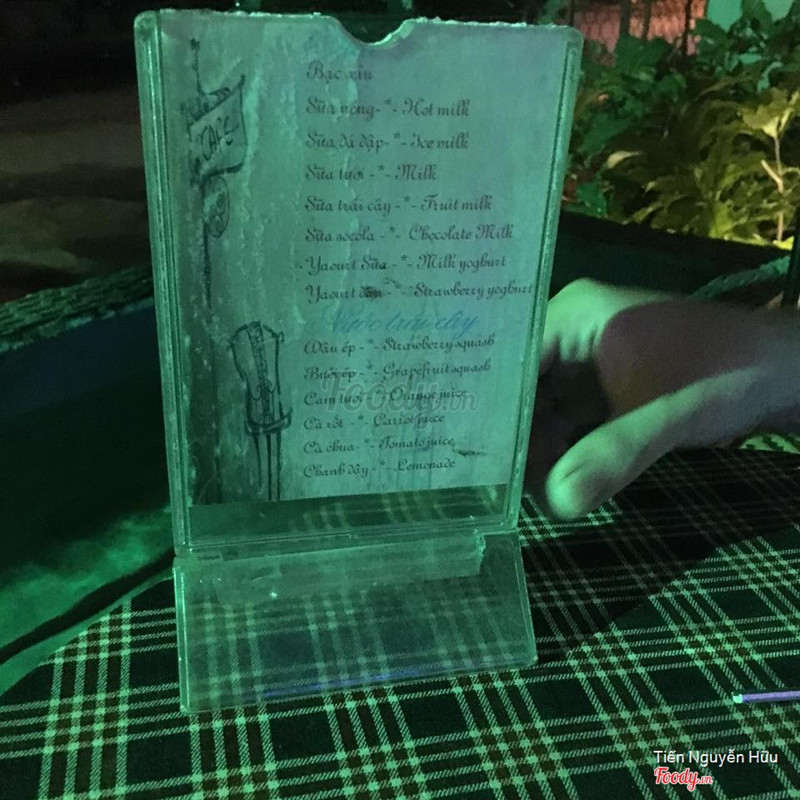 CAFE
Bạc xỉu
Sữa nóng -*- Hot milk
Sữa đá đập -*- Ice milk
Sữa tươi -*- Milk
Sữa trái cây -*- Fruit milk
Sữa socola -*- Chocolate Milk
Yaourt Sữa -*- Milk yoghurt
Yaourt dâu -*- Strawberry yoghurt
Nước trái cây
Dâu ép -*- Strawberry squash
Bưởi ép -*- Grapefruit squash
Cam tươi -*- Orange juice
Cà rốt -*- Carrot juice
Cà chua -*- Tomato juice
Chanh dây -*- Lemonade
Foody.vn
Tiến Nguyễn Hữu
Foody.vn